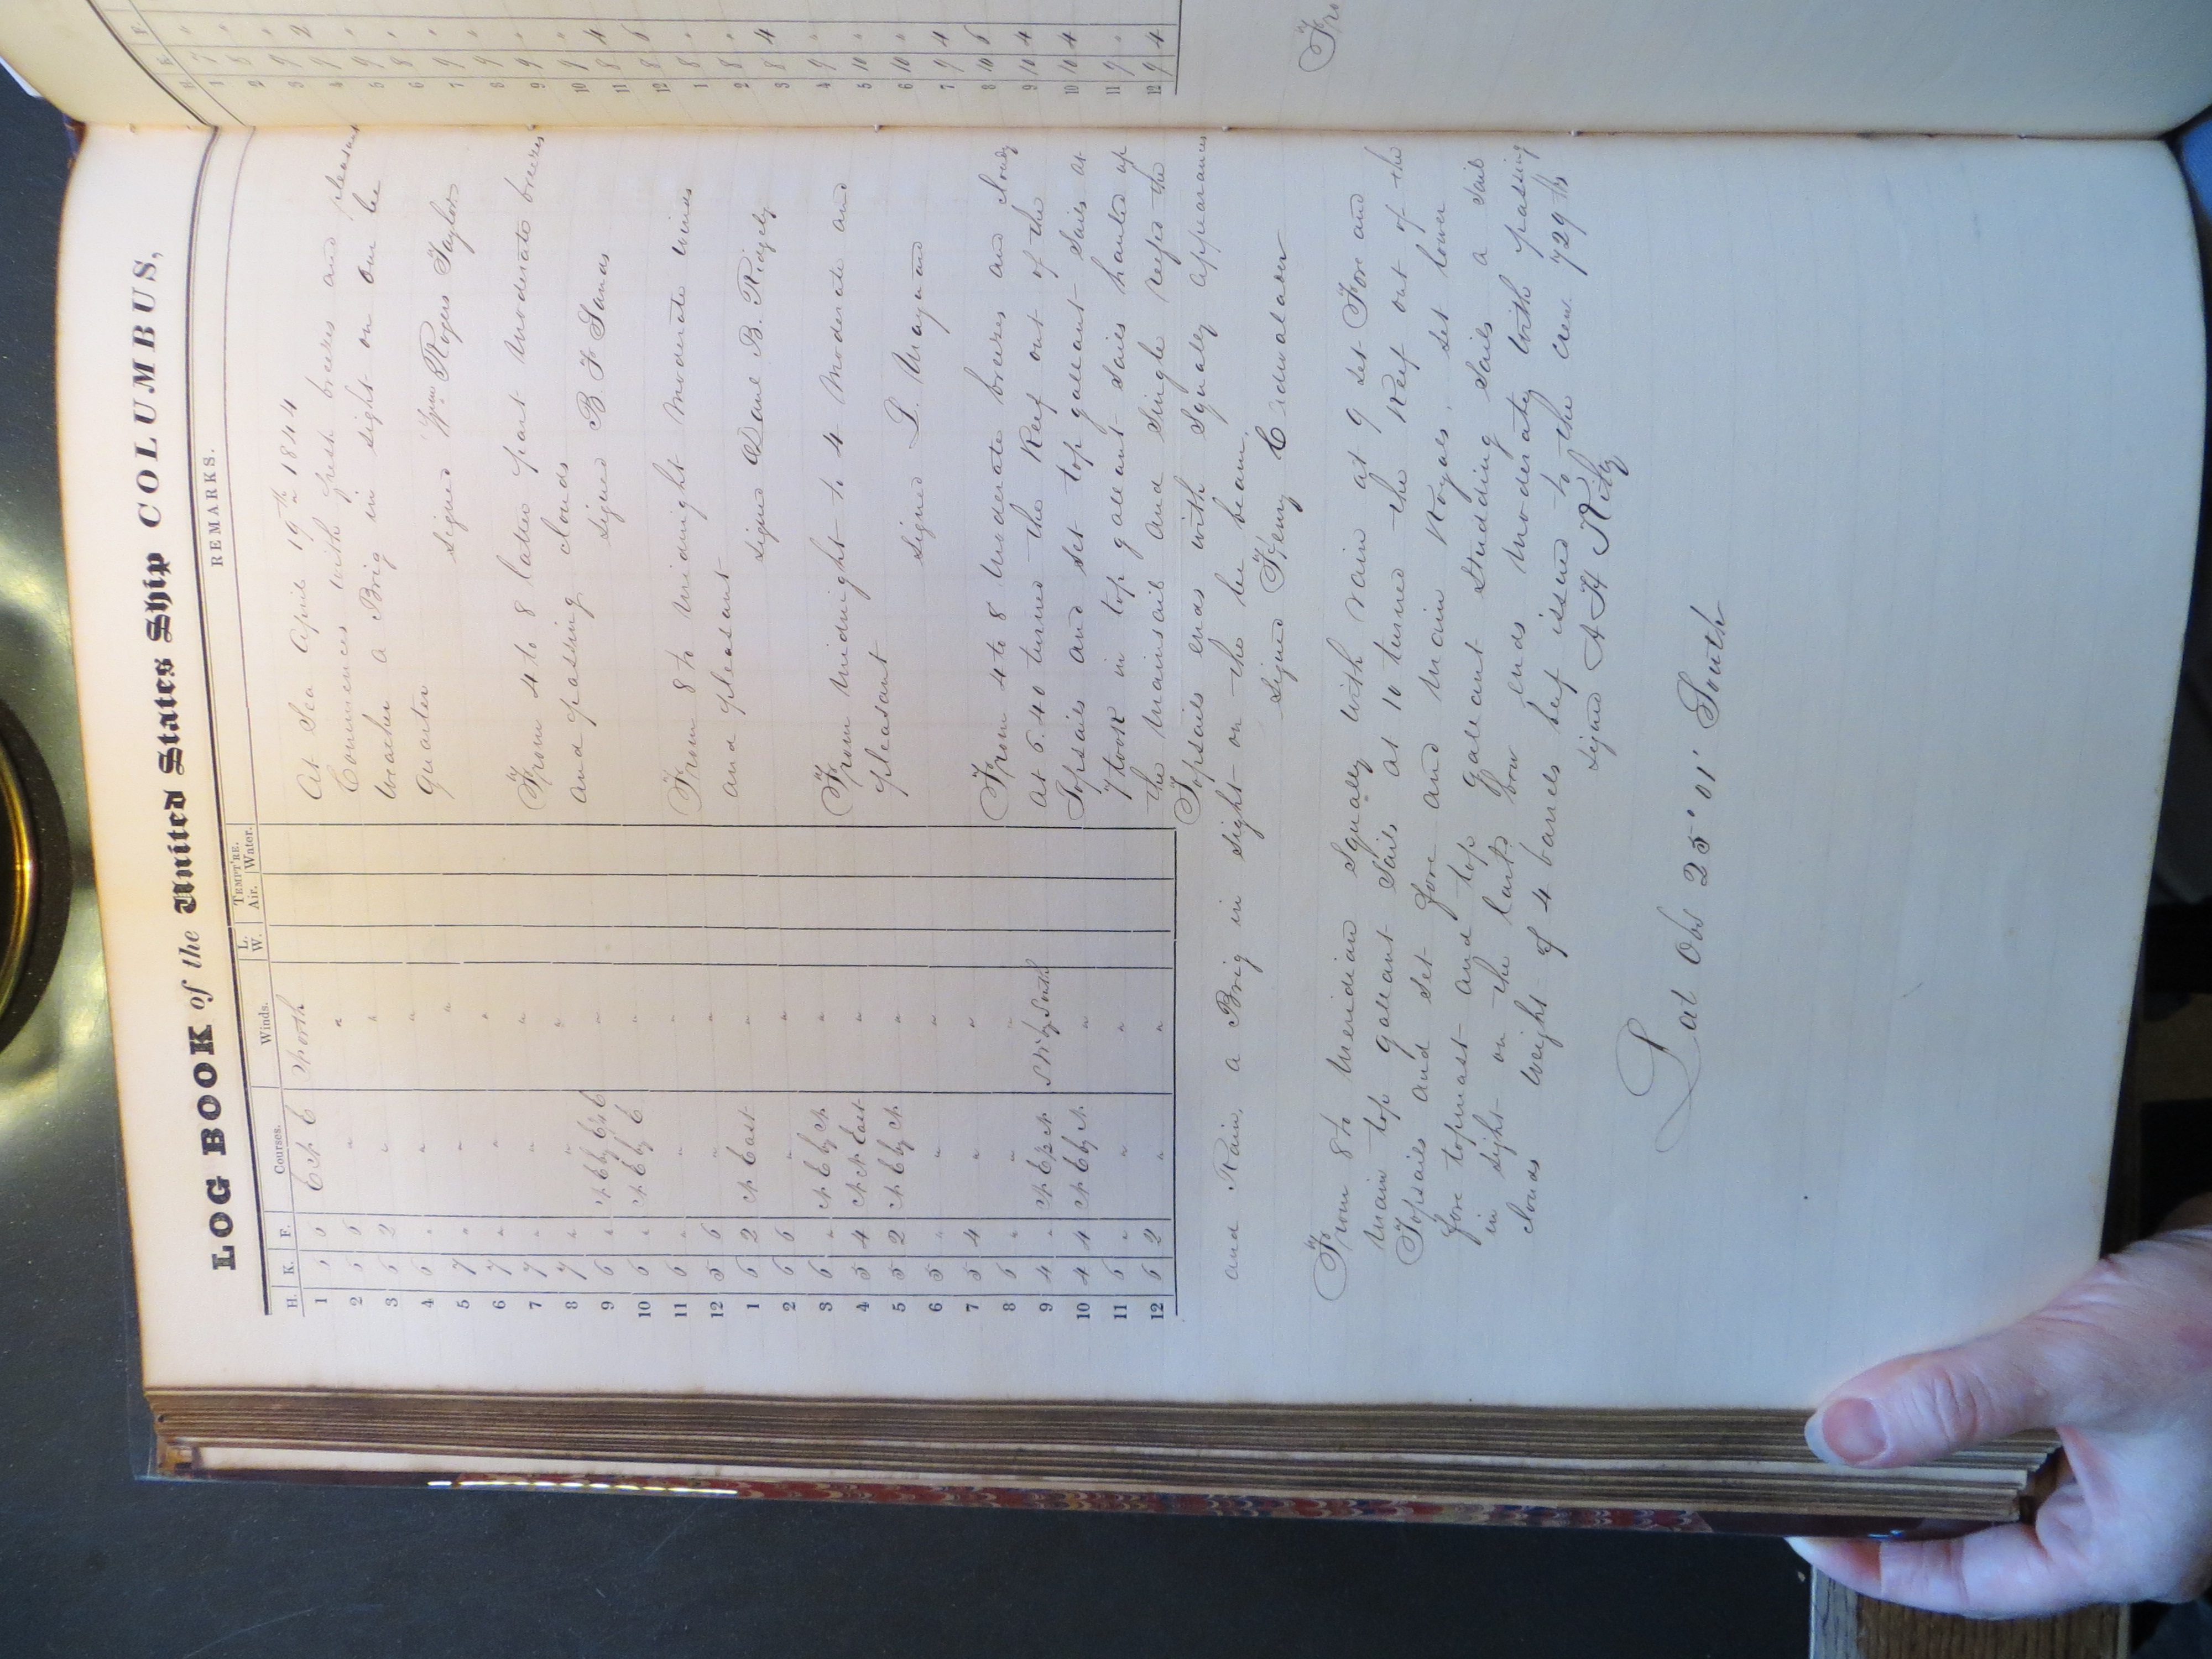 LOG BOOK of the United States Ship COLUMBUS,
H. K. F. Courses. Winds. L. W. TEMPT'RE. Air. Water. REMARKS.
1 " 6 E N E North
2 5 6 " "
3 6 2 " "
4 6 " " "
5 7 " " "
6 7 " " "
7 7 " " "
8 7 " " "
9 6 " "
10 6 " N E by E "
11 6 " " "
12 5 6 " "
1 6 2 N East "
2 6 6 " "
3 6 " N E by N "
4 5 4 N N East "
5 5 2 N E by N "
6 5 " " "
7 5 4 " "
8 6 " " "
9 4 " N E by N S W by South
10 4 4 N E by N "
11 6 " " "
12 6 2 " "
At Sea April 19th 1844
Commences with fresh breezes and pleasant
weather a Brig in sight on our lee
quarter
Signed Wm Rogers Taylor
From 4 to 8 latter part moderate breezes
and passing clouds
Signed B F Sands
From 8 to midnight moderate winds
and pleasant
Signed Danl B. Ridgely
From midnight to 4 moderate and
pleasant
Signed L. Maynard
From 4 to 8 moderate breezes and cloudy
at 5.40 turned the Reef out of the
Topsails and set top gallant Sails at
7 took in top gallant Sails hauled up
the mainsail and Single reefed the
Topsails ends with Squally appearances
and Rain, a Brig in sight on the lee beam.
Signed Henry Cadwalader
From 8 to meridian Squally with rain at 9 set Fore and
main top gallant Sails at 10 turned the Reef out of the
Topsails and set fore and main Royals. set lower
fore topmast and top gallant Studding Sails a Sail
in sight on the larb bow ends moderately with passing
clouds weight of 4 barrels beef issued to the crew 729 lbs
Signed A H Kilty
Lat Obs 25° 01' South
H.
1
2
3 9 2
4 9 "
5 9 "
6 8 "
7 9 "
8 9 "
9 9 "
10 9 "
11 8 4
12 8 6
1 8 "
2 8 "
3 8 4
4 9 "
5 10 "
6 10 "
7 9 4
8 10 6
9 10 4
10 10 4
11 9 "
12 9 4
Fro